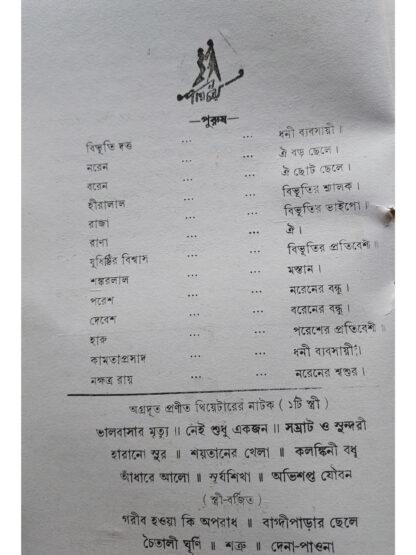 পরিচয়
—পুরুষ—
বিভূতি দত্ত ... ... ধনী ব্যবসায়ী।
নরেন ... ... ঐ বড় ছেলে।
বরেন ... ... ঐ ছোট ছেলে।
হীরালাল ... ... বিভূতির শ্যালক।
রাজা ... ... বিভূতির ভাইপো।
রাণা ... ... ঐ।
যুধিষ্ঠির বিশ্বাস ... ... বিভূতির প্রতিবেশী॥
শঙ্করলাল ... ... মস্তান।
পরেশ ... ... নরেনের বন্ধু।
দেবেশ ... ... বরেনের বন্ধু।
হারু ... ... পরেশের প্রতিবেশী॥
কামতাপ্রসাদ ... ... ধনী ব্যবসায়ী।
নক্ষত্র রায় ... ... নরেনের শ্বশুর।
অগ্রদূত প্রণীত থিয়েটারের নাটক ( ১টি স্ত্রী )
ভালবাসার মৃত্যু ॥ নেই শুধু একজন ॥ সম্রাট ও সুন্দরী
হারানো সুর ॥ শয়তানের খেলা ॥ কলঙ্কিনী বধূ
আঁধারে আলো ॥ সূর্যশিখা ॥ অভিশপ্ত যৌবন
( স্ত্রী-বর্জিত )
গরীব হওয়া কি অপরাধ ॥ বাগ্দীপাড়ার ছেলে
চৈতালী ঘূর্ণি ॥ শত্রু ॥ দেনা-পাওনা